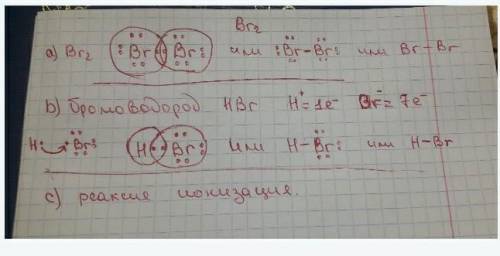 Br₂
a) Br₂ :Br::Br: или :Br-Br: или Br-Br
b) бромоводород HBr H⁺=1e⁻ Br⁻=7e⁻
H· → ·Br: H:Br: или H-Br: или H-Br
c) реакция ионизация.